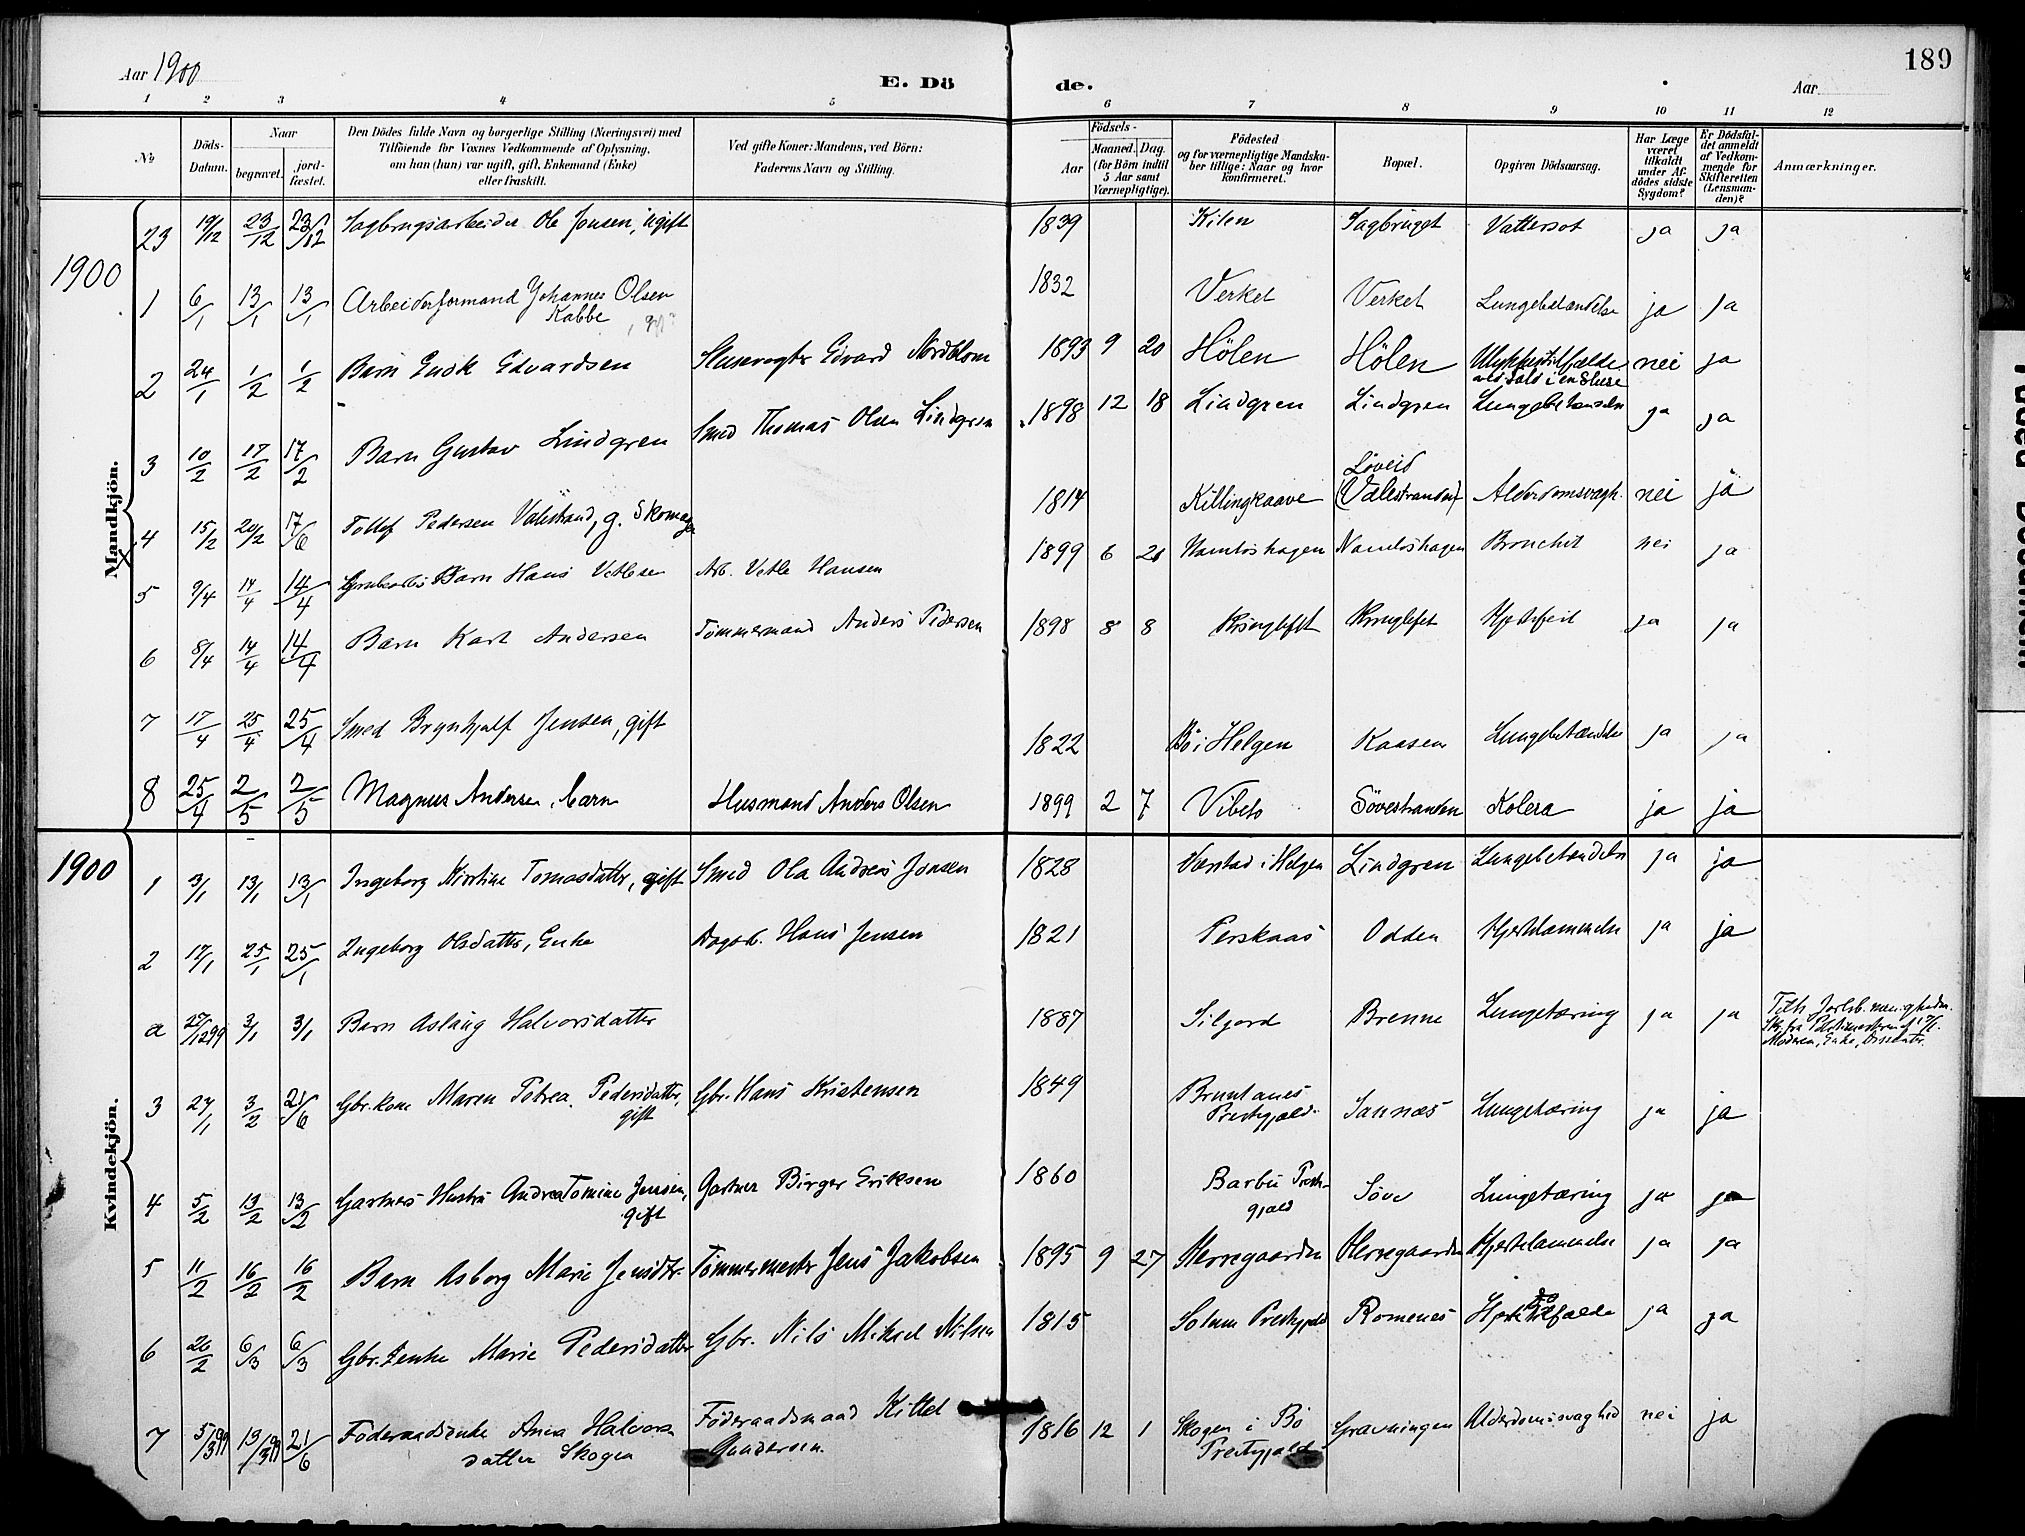 Aar 1900
E. Dö
de.
Aar
189
1 2 3 4 5 6 7 8 9 10 11 12
No
Döds-
Datum.
Naar
begravet.
jord-
fæstet.
Den Dödes fulde Navn og borgerlige Stilling (Næringsvei) med
Tilföiende för Voxnes Vedkommende af Oplysning,
om han (hun) var ugift, gift, Enkemand (Enke)
eller fraskilt.
Ved gifte Koner: Mandens, ved Börn:
Faderens Navn og Stilling.
Födsels-
Aar
Maaned. Dag.
(for Börn indtil
5 Aar samt
Værnepligtige).
Födested
og for værnepligtige Mandska-
ber tillige: Naar og hvor
konfirmeret.
Bopæl.
Opgiven Dödsaarsag.
Har Læge
været
tilkaldt
under Af-
dödes sidste
Sygdom?
Er Dödsfal-
det anmeldt
af Vedkom-
mende for
Skifteretten
(Lensman-
den)?
Anmærkninger.
Mandkjön.
23 19/12 23/12 23/12 Sagbrugsarbeider Ole Jonsen, ugift 1839 Kilen Sagbruget Vattersot ja ja
1900
1 6/1 13/1 13/1 Arbeiderformand Johannes Olsen 1832 Verket Verket Lungebetændelse ja ja
Kabbe
2 24/1 1/2 1/2 Barn Edvardsen Slusevogter Edvard Nordblom 1893 9 20 Hölen Hölen Ulykkestilfælde nei ja
ved Fald i en Sluse
3 10/2 17/2 17/2 Barn Gustav Lindgren Smed Thomas Olsen Lindgren 1898 12 18 Lindgren Lindgren Lungebetændelse ja ja
4 15/2 20/2 17/6 Tollef Pedersen Valestrand, g. Skomager 1814 Killingkaave Löveid
(Valestranden) Alderdomsvagh. nei ja
5 9/4 14/4 14/4 Barn Hans Vetlesen Arb. Vetle Hansen 1899 6 Namloshagen Namloshagen Bronchit nei ja
6 8/4 14/4 14/4 Barn Karl Andersen Tömmermand Anders Pedersen 1898 8 8 Kringlefet Kringlefet Hjertefeil ja ja
7 17/4 25/4 25/4 Smed Brynhjalf Jensen, gift 1822 Bö i Helgen Kaasen Lungebetændelse ja ja
8 25/4 2/5 2/5 Magnus Andersen, barn Husmand Anders Olsen 1899 2 7 Vibeto Sövestranden Kolera ja ja
Kvindekjön.
1900
1 3/1 13/1 13/1 Ingeborg Kirstine Tomasdatter, gift Smed Ola Andreas Jonsen 1828 Værstad i Helgen Lindgren Lungebetændelse ja ja
2 17/1 25/1 25/1 Ingeborg Olsdatter, Enke Dagarb. Hans Jensen 1821 Perskaas Odden Hjertelammelse ja ja
a 27/12 99 3/1 3/1 Barn Aslaug Halvorsdatter 1887 Siljord Brenne Lungetæring ja ja
Moderen, Enke, Dissenter.
3 27/1 3/2 21/6 Gbr.kone Maren Petrea Pedersdatter, Gbr. Hans Kristensen 1849 Brunlanes Sannæs Lungetæring ja ja
gift Prestegjæld
4 5/2 13/2 13/2 Gartners Hustru Andrea Tomine Jensen, Gartner Birger Eriksen 1860 Barbu Prest- Söve Lungetæring ja ja
gift gjæld
5 11/2 16/2 16/2 Barn Asborg Marie Jensdtr. Tömmermester Jens Jakobsen 1895 9 27 Herregaarden Herregaarden Hjertelammelse ja ja
6 26/2 6/3 6/3 Gbr.enke Marie Pedersdatter Gbr. Nils Mikael Nilsen 1815 Solum Prestegjæld Romenes ja ja
7 5/3 99 13/3 99 21/6 Föderaadsenke Anna Halvors Föderaadsmaad Kittel 1816 12 1 Skogen i Bö Gravningen Alderdomsvaghed nei ja
datter Skogen Gundersen Prestegjæld